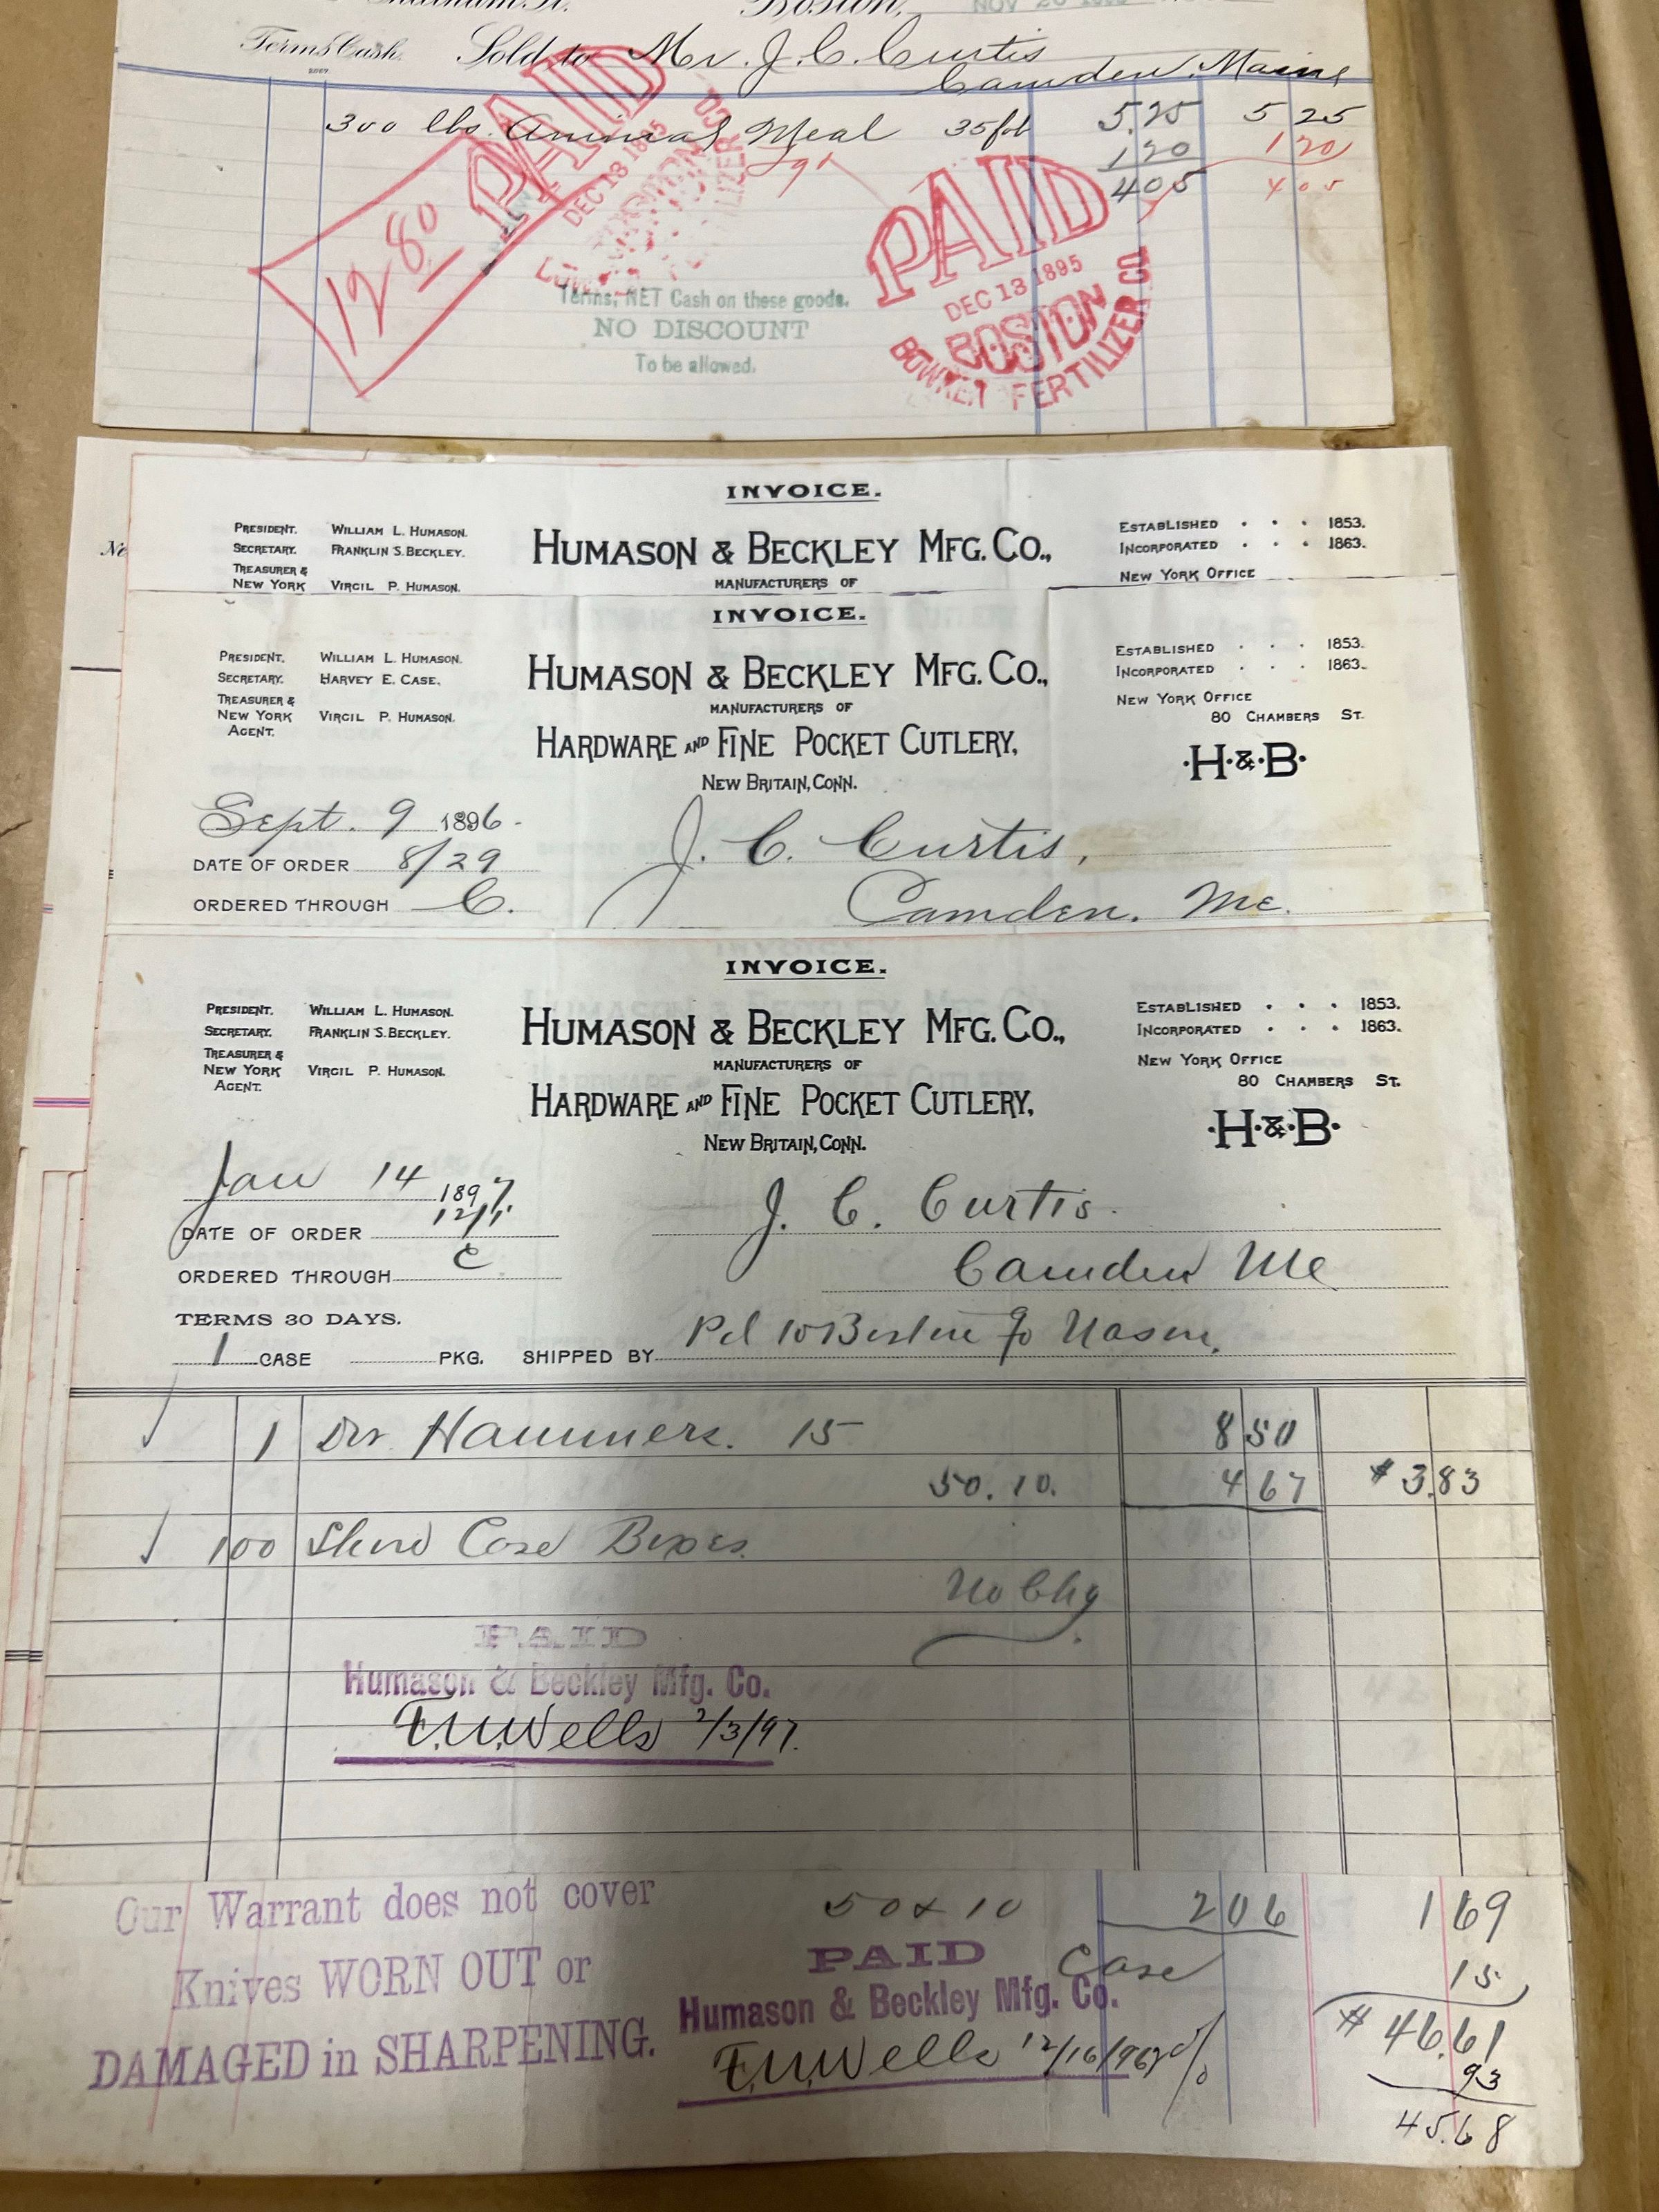 Boston, NOV
Terms Cash. Sold to Mr. J. C. Curtis
Camden, Maine
300 lbs. Animal Meal 35 fob 5.25 5 25
1 20 1 20
4 05 4 05
12.80
PAID
DEC 13 1895
PAID
DEC 13 1895
BOSTON
BOWKER FERTILIZER CO.
Terms, NET Cash on these goods.
NO DISCOUNT
To be allowed.
INVOICE.
PRESIDENT. WILLIAM L. HUMASON.
SECRETARY. FRANKLIN S. BECKLEY.
TREASURER &
NEW YORK VIRGIL P. HUMASON.
HUMASON & BECKLEY MFG. CO.,
MANUFACTURERS OF
ESTABLISHED . . . 1853.
INCORPORATED . . . 1863.
NEW YORK OFFICE
No
INVOICE.
PRESIDENT. WILLIAM L. HUMASON.
SECRETARY. HARVEY E. CASE.
TREASURER &
NEW YORK VIRGIL P. HUMASON.
AGENT.
HUMASON & BECKLEY MFG. CO.,
MANUFACTURERS OF
HARDWARE AND FINE POCKET CUTLERY,
NEW BRITAIN, CONN.
ESTABLISHED . . . 1853.
INCORPORATED . . . 1863.
NEW YORK OFFICE
80 CHAMBERS ST.
·H·&·B·
Sept. 9 1896.
DATE OF ORDER 8/29
ORDERED THROUGH C.
J. C. Curtis,
Camden. Me.
INVOICE.
PRESIDENT. WILLIAM L. HUMASON.
SECRETARY. FRANKLIN S. BECKLEY.
TREASURER &
NEW YORK VIRGIL P. HUMASON.
AGENT.
HUMASON & BECKLEY MFG. CO.,
MANUFACTURERS OF
HARDWARE AND FINE POCKET CUTLERY,
NEW BRITAIN, CONN.
ESTABLISHED . . . 1853.
INCORPORATED . . . 1863.
NEW YORK OFFICE
80 CHAMBERS ST.
·H·&·B·
Jan 14 1897.
DATE OF ORDER
ORDERED THROUGH C
J. C. Curtis.
Camden Me
TERMS 30 DAYS.
1 CASE PKG. SHIPPED BY
1 Dz Hammers. 15 8 50
50. 10. 4 67 $3.83
100 Show Case Boxes.
No Chg.
PAID
Humason & Beckley Mfg. Co.
F.M.Wells 2/3/97.
Our Warrant does not cover
Knives WORN OUT or
DAMAGED in SHARPENING.
50 & 10 2 06 1 69
Case 15
PAID
Humason & Beckley Mfg. Co.
F.M.Wells 12/16/96
$46.61
2% 93
45.68